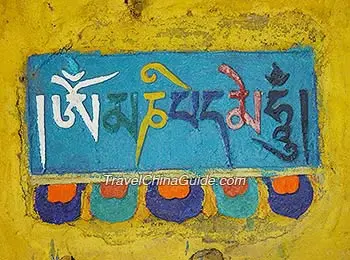 །ཨོཾ་མ་ཎི་པད་མེ་ཧཱུྃ།
TravelChinaGuide.com